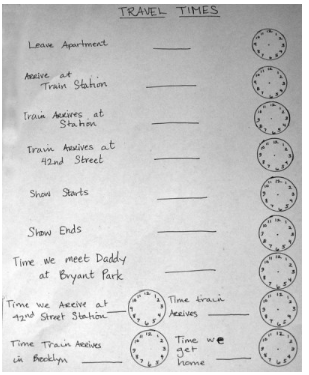 TRAVEL TIMES
Leave Apartment
Arrive at
Train Station
Train Arrives at
Station
Train Arrives at
42nd Street
Show Starts
Show Ends
Time we meet Daddy
at Bryant Park
Time we Arrive at
42nd Street Station
Time train
Arrives
Time Train Arrives
in Brooklyn
Time we
get
home